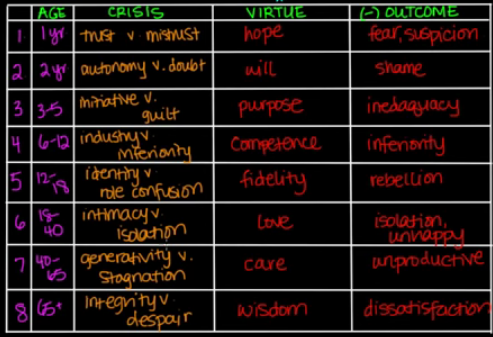 AGE CRISIS VIRTUE (-) OUTCOME
1 1yr trust v. mistrust hope fear, suspicion
2 2yr autonomy v. doubt will shame
3 3-5 initiative v. guilt purpose inedaquacy
4 6-12 industry v. inferiority competence inferiority
5 12-18 identity v. role confusion fidelity rebellion
6 18-40 intimacy v. isolation love isolation, unhappy
7 40-65 generativity v. stagnation care unproductive
8 65+ integrity v. despair wisdom dissatisfaction